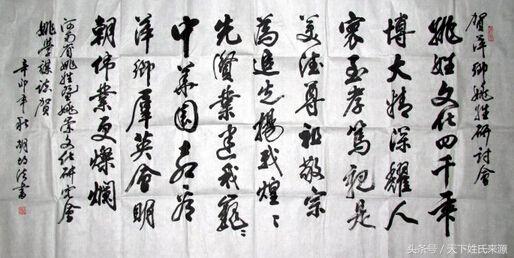 賀萍鄉姚姓研討會
姚姓文化四千年
博大精深耀人
寰至孝篤親是
美德尊祖敬宗
為追先揚我煌〻
先賢業建我巍〻
中華園喜看
萍鄉羣英會明
朝偉業更燦爛
河南省姚姓暨姚崇文化研究會
姚學謀詠賀
辛卯年秋胡書
头条号 / 天下姓氏来源